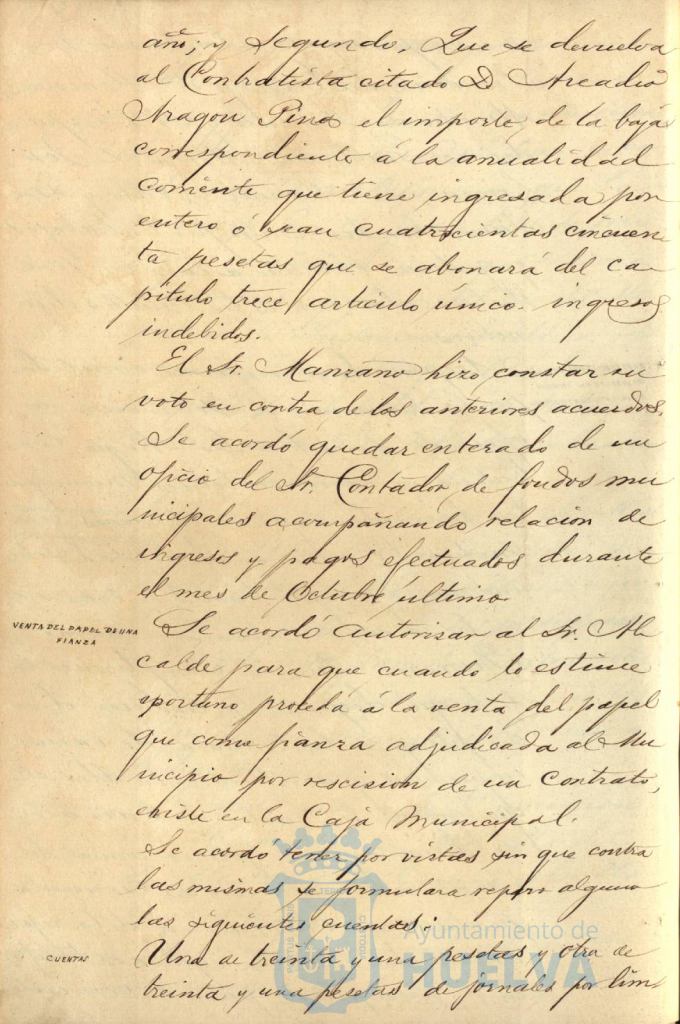 año; y Segundo. Que se devuelva
al Contratista citado D Arcadio
Aragón Pino el importe de la baja
correspondiente á la anualidad
corriente que tiene ingresada por
entero ó sean cuatrocientas cincuen
ta pesetas que se abonará del ca-
pitulo trece articulo único. ingresos
indebidos.
El Sr. Manzano hizo constar su
voto en contra de los anteriores acuerdos.
Se acordó quedar enterado de un
oficio del Sr. Contador de fondos mu
nicipales acompañando relacion de
ingresos y pagos efectuados durante
el mes de Octubre último
VENTA DEL PAPEL DE UNA
FIANZA
Se acordó autorizar al Sr. Al
calde para que cuando lo estime
oportuno proceda á la venta del papel
que como fianza adjudicada al Mu
nicipio por rescision de un contrato,
existe en la Caja Municipal.
Se acordo tener por vistas sin que contra
las mismas se formulara reparo alguno
las siguientes cuentas:
CUENTAS
Una de treinta y una pesetas y otra de
treinta y una pesetas de jornales por lim-
Ayuntamiento de
HUELVA